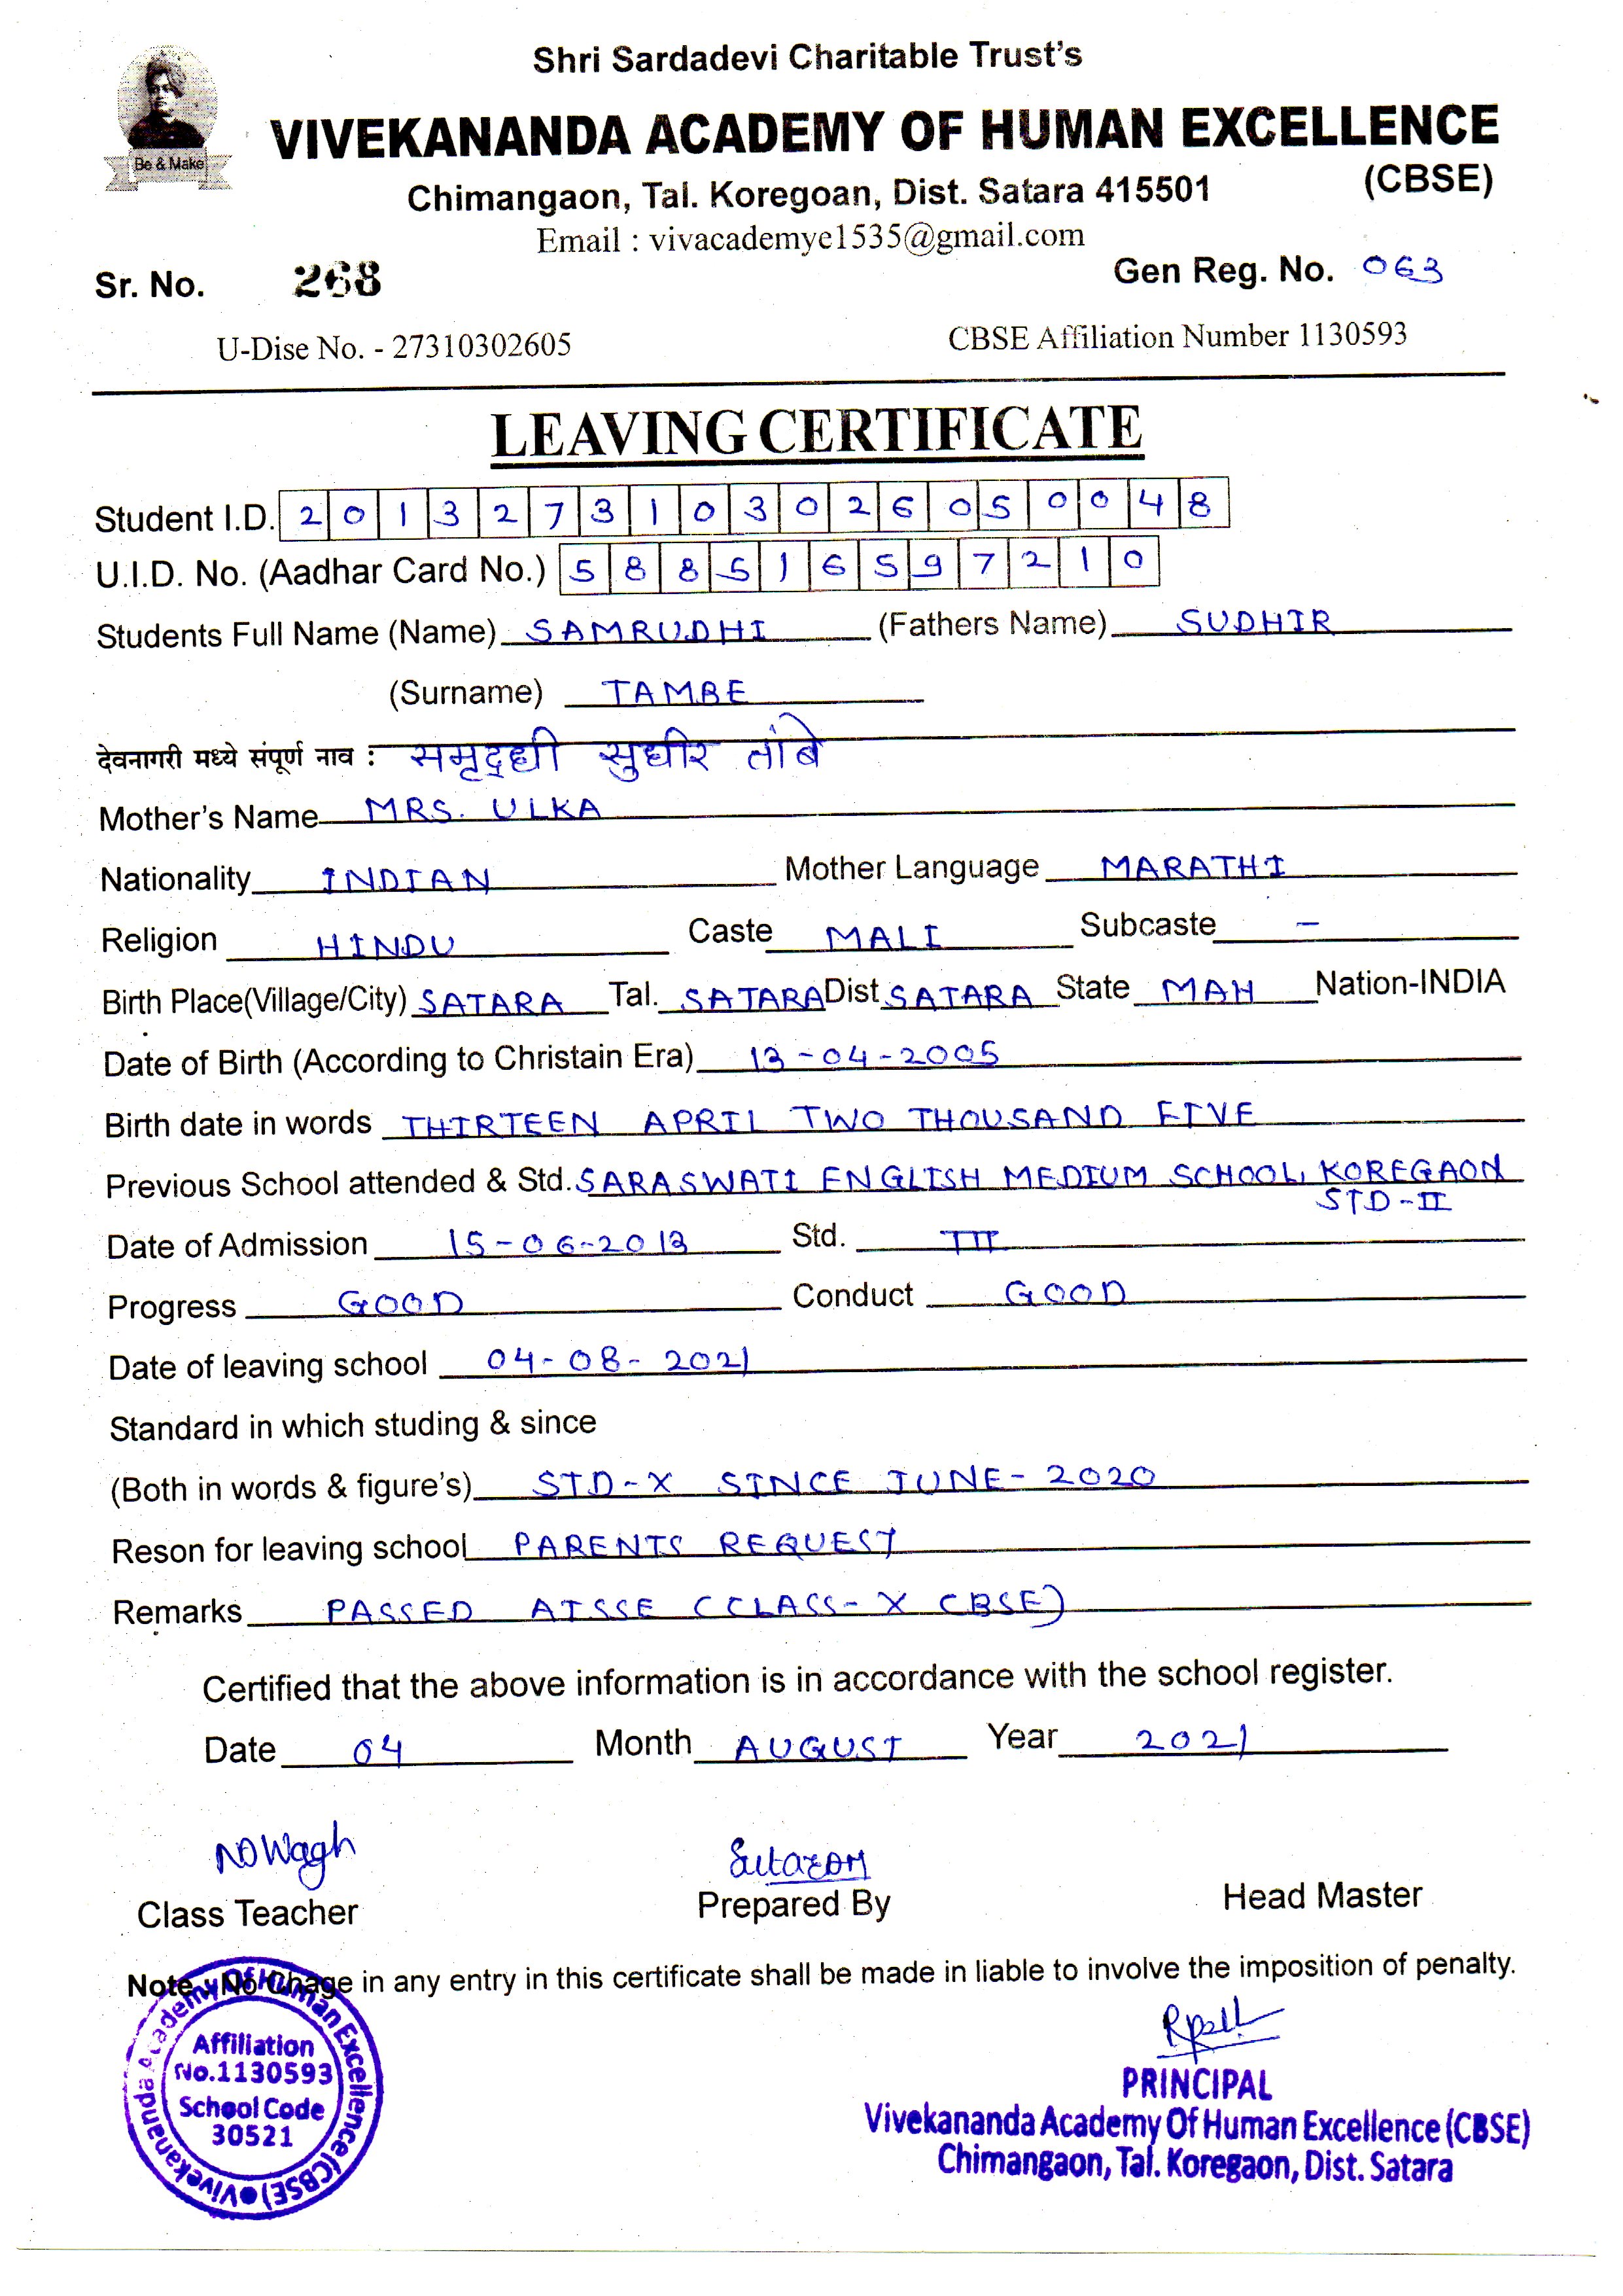 Shri Sardadevi Charitable Trust's
VIVEKANANDA ACADEMY OF HUMAN EXCELLENCE
(CBSE)
Chimangaon, Tal. Koregoan, Dist. Satara 415501
Be & Make
Email : vivacademye1535@gmail.com
Sr. No. 268 Gen Reg. No. 063
U-Dise No. - 27310302605 CBSE Affiliation Number 1130593
LEAVING CERTIFICATE
Student I.D. 2013273103026050048
U.I.D. No. (Aadhar Card No.) 588516597210
Students Full Name (Name) SAMRUDHI (Fathers Name) SUDHIR
(Surname) TAMBE
देवनागरी मध्ये संपूर्ण नाव : समृद्धी सुधीर तांबे
Mother's Name MRS. ULKA
Nationality INDIAN Mother Language MARATHI
Religion HINDU Caste MALI Subcaste -
Birth Place(Village/City) SATARA Tal. SATARA Dist SATARA State MAH Nation-INDIA
Date of Birth (According to Christain Era) 13-04-2005
Birth date in words THIRTEEN APRIL TWO THOUSAND FIVE
Previous School attended & Std. SARASWATI ENGLISH MEDIUM SCHOOL, KOREGAON
STD-II
Date of Admission 15-06-2013 Std. III
Progress GOOD Conduct GOOD
Date of leaving school 04-08-2021
Standard in which studing & since
(Both in words & figure's) STD-X SINCE JUNE-2020
Reson for leaving school PARENTS REQUEST
Remarks PASSED AISSE (CLASS-X CBSE)
Certified that the above information is in accordance with the school register.
Date 04 Month AUGUST Year 2021
NDWagh
Class Teacher Prepared By Head Master
Note : No Chage in any entry in this certificate shall be made in liable to involve the imposition of penalty.
Vivekananda Academy Of Human Excellence (CBSE)
Affiliation
No.1130593
School Code
30521
PRINCIPAL
Vivekananda Academy Of Human Excellence (CBSE)
Chimangaon, Tal. Koregaon, Dist. Satara